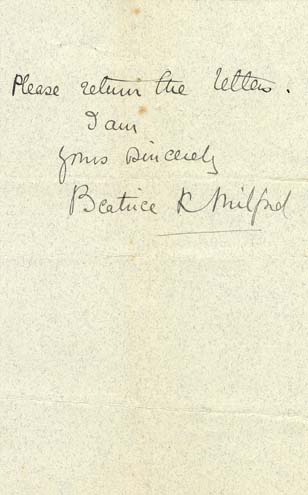 Please return the letters.
I am
Yours sincerely
Beatrice K Milford